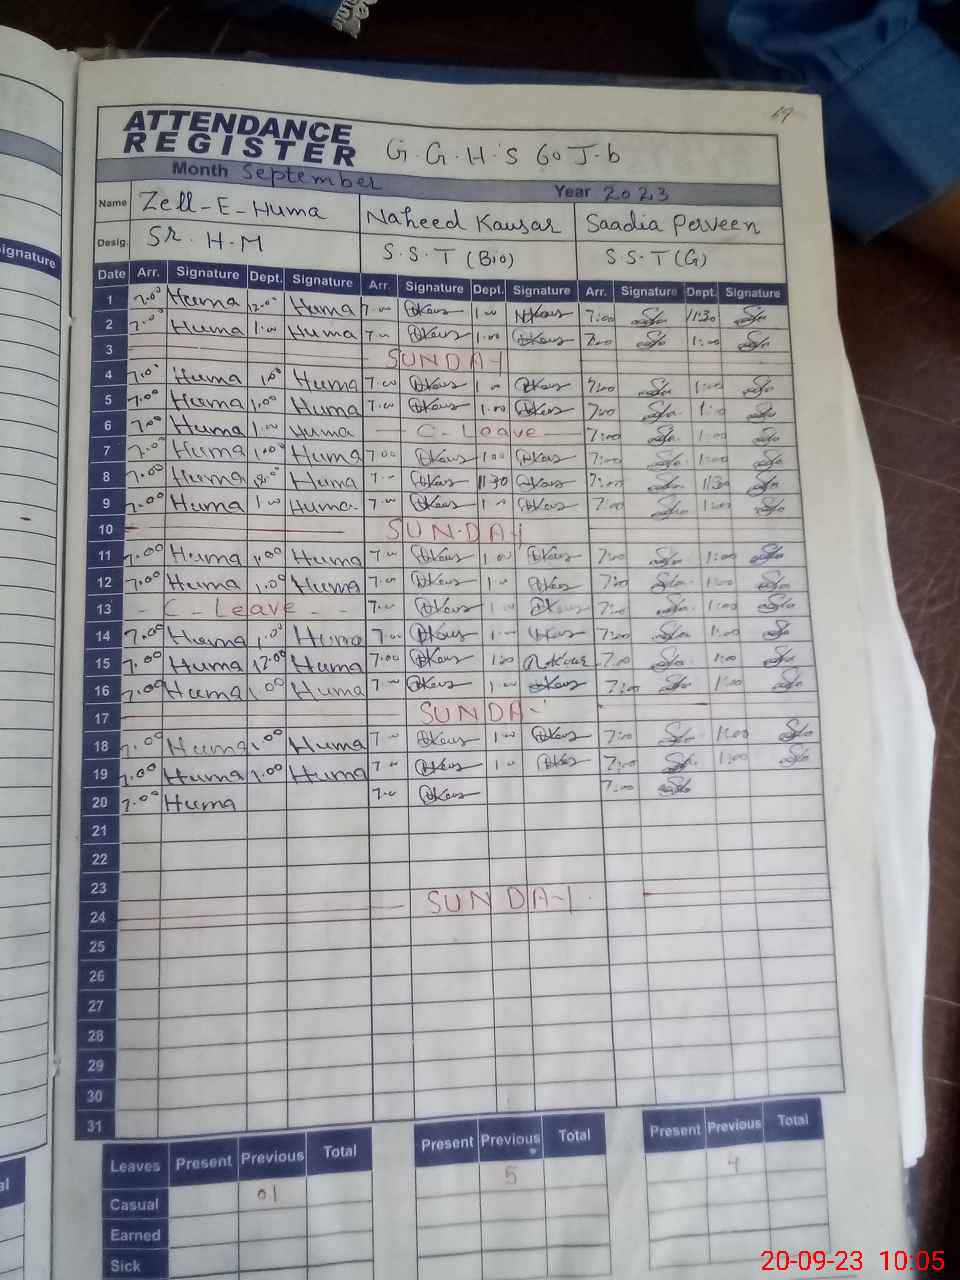 69
ATTENDANCE
REGISTER G.G.H.S 60 J.b
Month September Year 2023
Name Zell-E-Huma Naheed Kausar Saadia Perveen
Desig. Sr. H.M S.S.T (Bio) S.S.T (G)
ignature
Date Arr. Signature Dept. Signature Arr. Signature Dept. Signature Arr. Signature Dept. Signature
1 7.00 Huma 12.00 Huma 7.00 1.00 7:00 11:30
2 7.00 Huma 1.00 Huma 7.00 1.00 7:00 1:00
3 SUNDAY
4 7.00 Huma 1.00 Huma 7.00 1.00 7:00 1:00
5 7.00 Huma 1.00 Huma 7.00 1.00 7:00 1:00
6 7.00 Huma 1.00 Huma C-Leave 7:00 1:00
7 7.00 Huma 1.00 Huma 7.00 1.00 7:00 1:00
8 7.00 Huma Huma 7.00 11:30 7:00 11:30
9 7.00 Huma 1.00 Huma 7.00 1.00 7:00 1:00
10 SUNDAY
11 7.00 Huma 1.00 Huma 7.00 1.00 7:00 1:00
12 7.00 Huma 1.00 Huma 7.00 1.00 7:00 1:00
13 - C-Leave - - 7.00 1.00 7:00 1:00
14 7.00 Huma 1.00 Huma 7.00 1.00 7:00 1:00
15 7.00 Huma 12.00 Huma 7.00 7:00 1:00
16 7.00 Huma 1.00 Huma 7.00 1.00 7:00 1:00
17 SUNDAY
18 7.00 Huma 1.00 Huma 7.00 1.00 7:00 1:00
19 7.00 Huma 1.00 Huma 7.00 1.00 7:00 1:00
20 7.00 Huma 7.00 7:00
21
22
23
24 SUNDAY
25
26
27
28
29
30
31
Leaves Present Previous Total Present Previous Total Present Previous Total
Casual 01 5 4
Earned
Sick
al
20-09-23 10:05